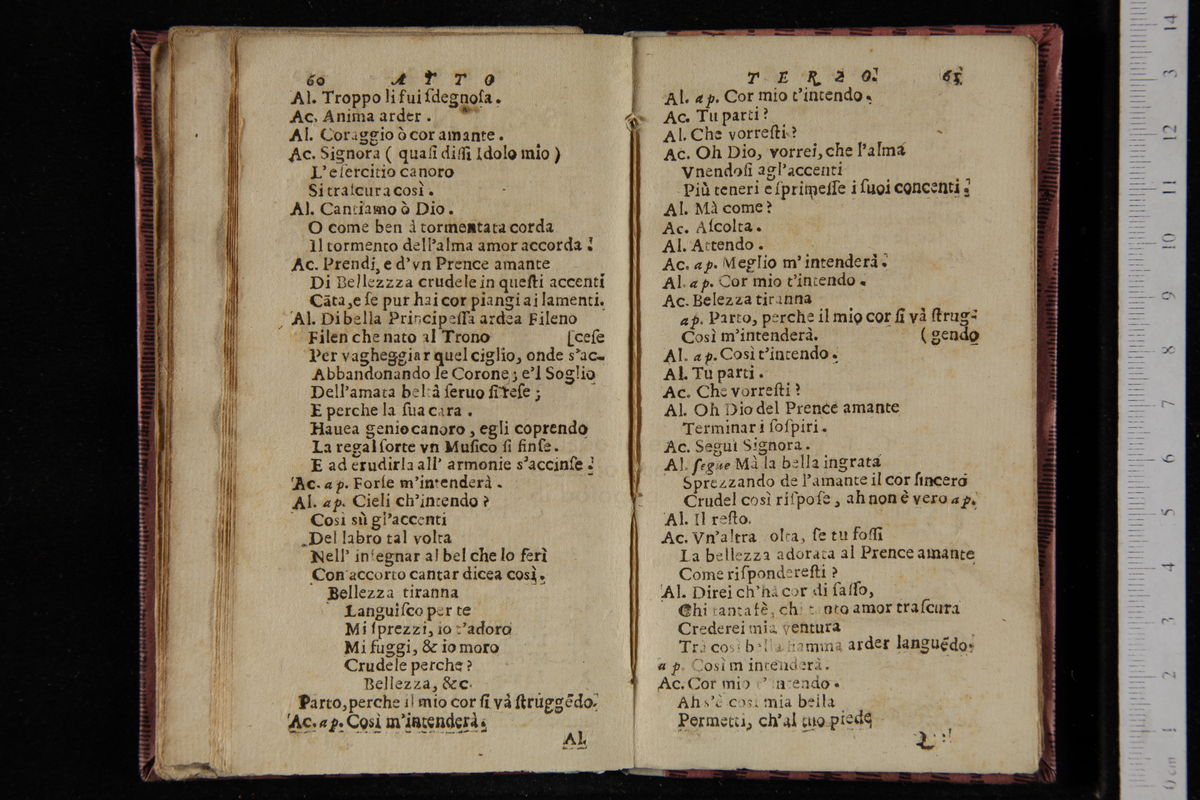 60 ATTO
Al. Troppo li fui ſdegnoſa.
Ac. Anima arder.
Al. Coraggio ò cor amante.
Ac. Signora ( quaſi diſſi Idolo mio )
L'eſercitio canoro
Si traſcura così.
Al. Cantiamo ò Dio.
O come ben à tormentata corda
Il tormento dell'alma amor accorda!
Ac. Prendi, e d'vn Prence amante
Di Bellezzza crudele in queſti accenti
Cãta, e ſe pur hai cor piangi ai lamenti.
Al. Di bella Principeſſa ardea Fileno
Filen che nato al Trono [ceſe
Per vagheggiar quel ciglio, onde s'ac-
Abbandonando le Corone; e'l Soglio
Dell'amata beltà ſeruo ſi reſe;
E perche la ſua cara.
Hauea genio canoro, egli coprendo
La regal ſorte vn Muſico ſi finſe.
E ad erudirla all' armonie s'accinſe!
Ac. ap. Forſe m'intenderà.
Al. ap. Cieli ch'intendo?
Così sù gl'accenti
Del labro tal volta
Nell' inſegnar al bel che lo ferì
Con accorto cantar dicea così.
Bellezza tiranna
Languiſco per te
Mi ſprezzi, io t'adoro
Mi fuggi, & io moro
Crudele perche?
Bellezza, &c.
Parto, perche il mio cor ſi và ſtruggẽdo.
Ac. ap. Così m'intenderà.
AL
TERZO. 61
Al. ap. Cor mio t'intendo.
Ac. Tu parti?
Al. Che vorreſti?
Ac. Oh Dio, vorrei, che l'alma
Vnendoſi agl'accenti
Più teneri eſprimeſſe i ſuoi concenti!
Al. Mà come?
Ac. Aſcolta.
Al. Attendo.
Ac. ap. Meglio m'intenderà!
Al. ap. Cor mio t'intendo.
Ac. Belezza tiranna
ap. Parto, perche il mio cor ſi và ſtrug-
Così m'intenderà. ( gendo
Al. ap. Così t'intendo.
Al. Tu parti.
Ac. Che vorreſti?
Al. Oh Dio del Prence amante
Terminar i ſoſpiri.
Ac. Segui Signora.
Al. ſegue Mà la bella ingrata
Sprezzando de l'amante il cor ſincero
Crudel così riſpoſe, ah non è vero ap.
Al. Il reſto.
Ac. Vn'altra olta, ſe tu foſſi
La bellezza adorata al Prence amante
Come riſpondereſti?
Al. Direi ch'hà cor di ſaſſo,
Chi tanta fè, chi tanto amor traſcura
Crederei mia ventura
Trà così bella fiamma arder languẽdo.
ap. Così m intenderà.
Ac. Cor mio t'intendo.
Ah s'è così mia bella
Permetti, ch'al tuo piede